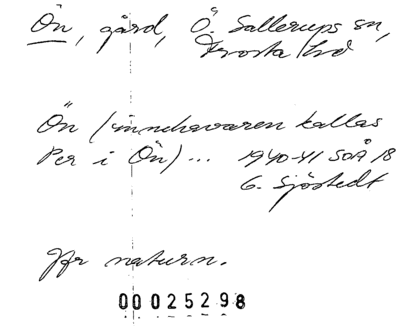 Ön, gård, Ö. Sallerups sn,
Frosta hd
Ön (innehavaren kallas
Per i Ön)... 1940-41 SOÅ 18
G. Sjöstedt
Jfr naturn.
00025298